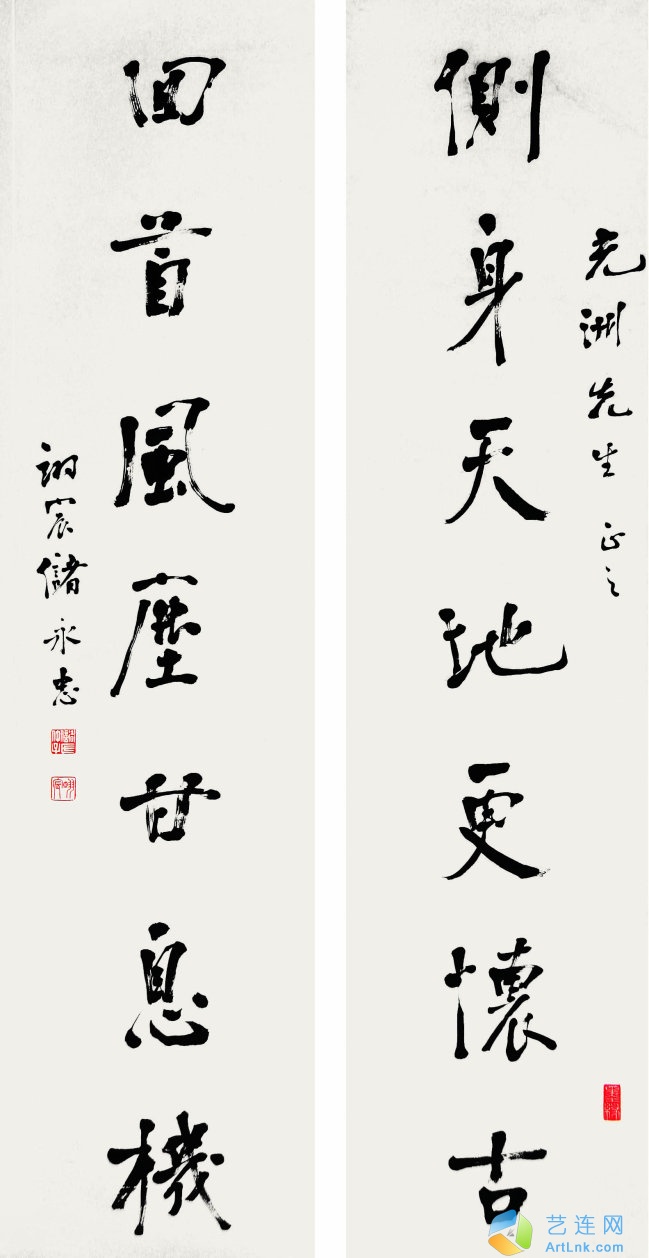 側身天地更懷古
光洲先生 正之
回首風塵甘息機
翊宸儲永忠
艺连网
ArtLnk.com